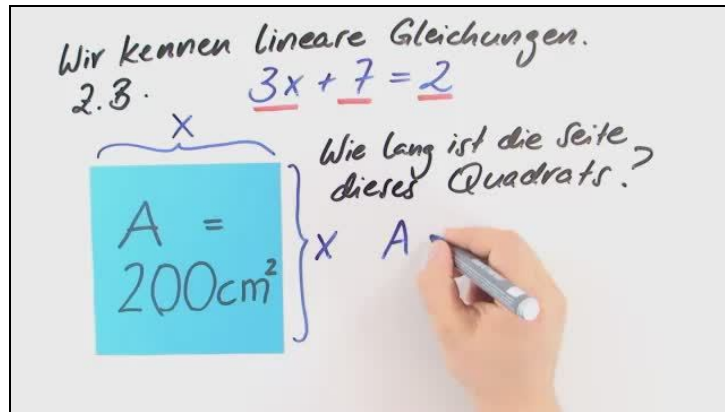 Wir kennen lineare Gleichungen.
z.B. 3x + 7 = 2
x
Wie lang ist die Seite
dieses Quadrats?
A =
200cm²
x
A